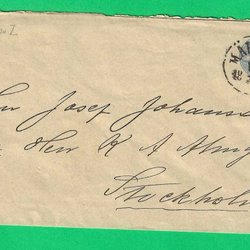 MAL
Josef Johanss
Herr K A Almg
Stockhol